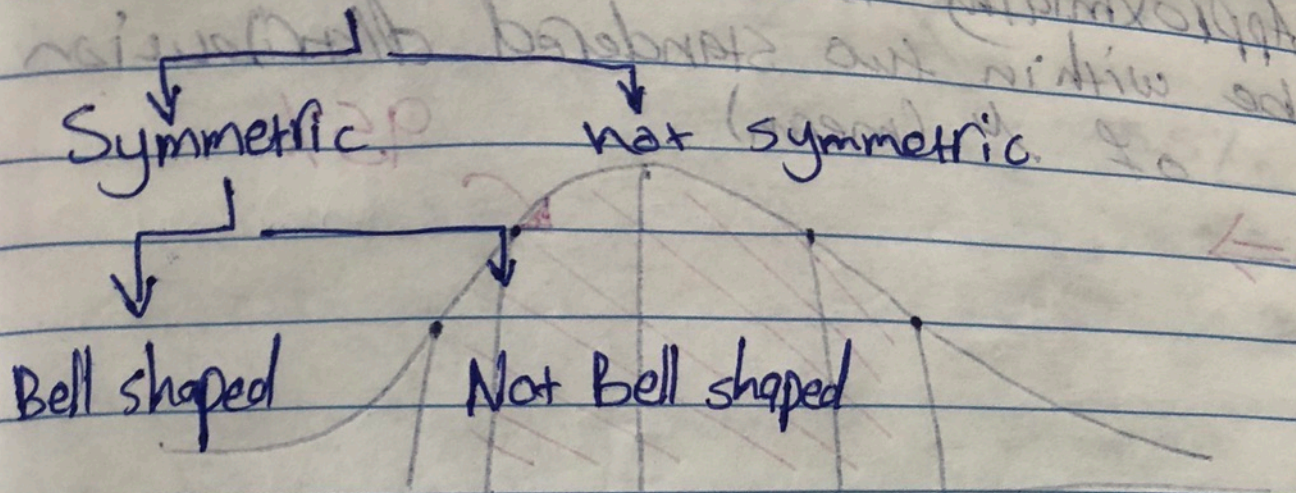 Symmetric not symmetric.
Bell shaped Not Bell shaped